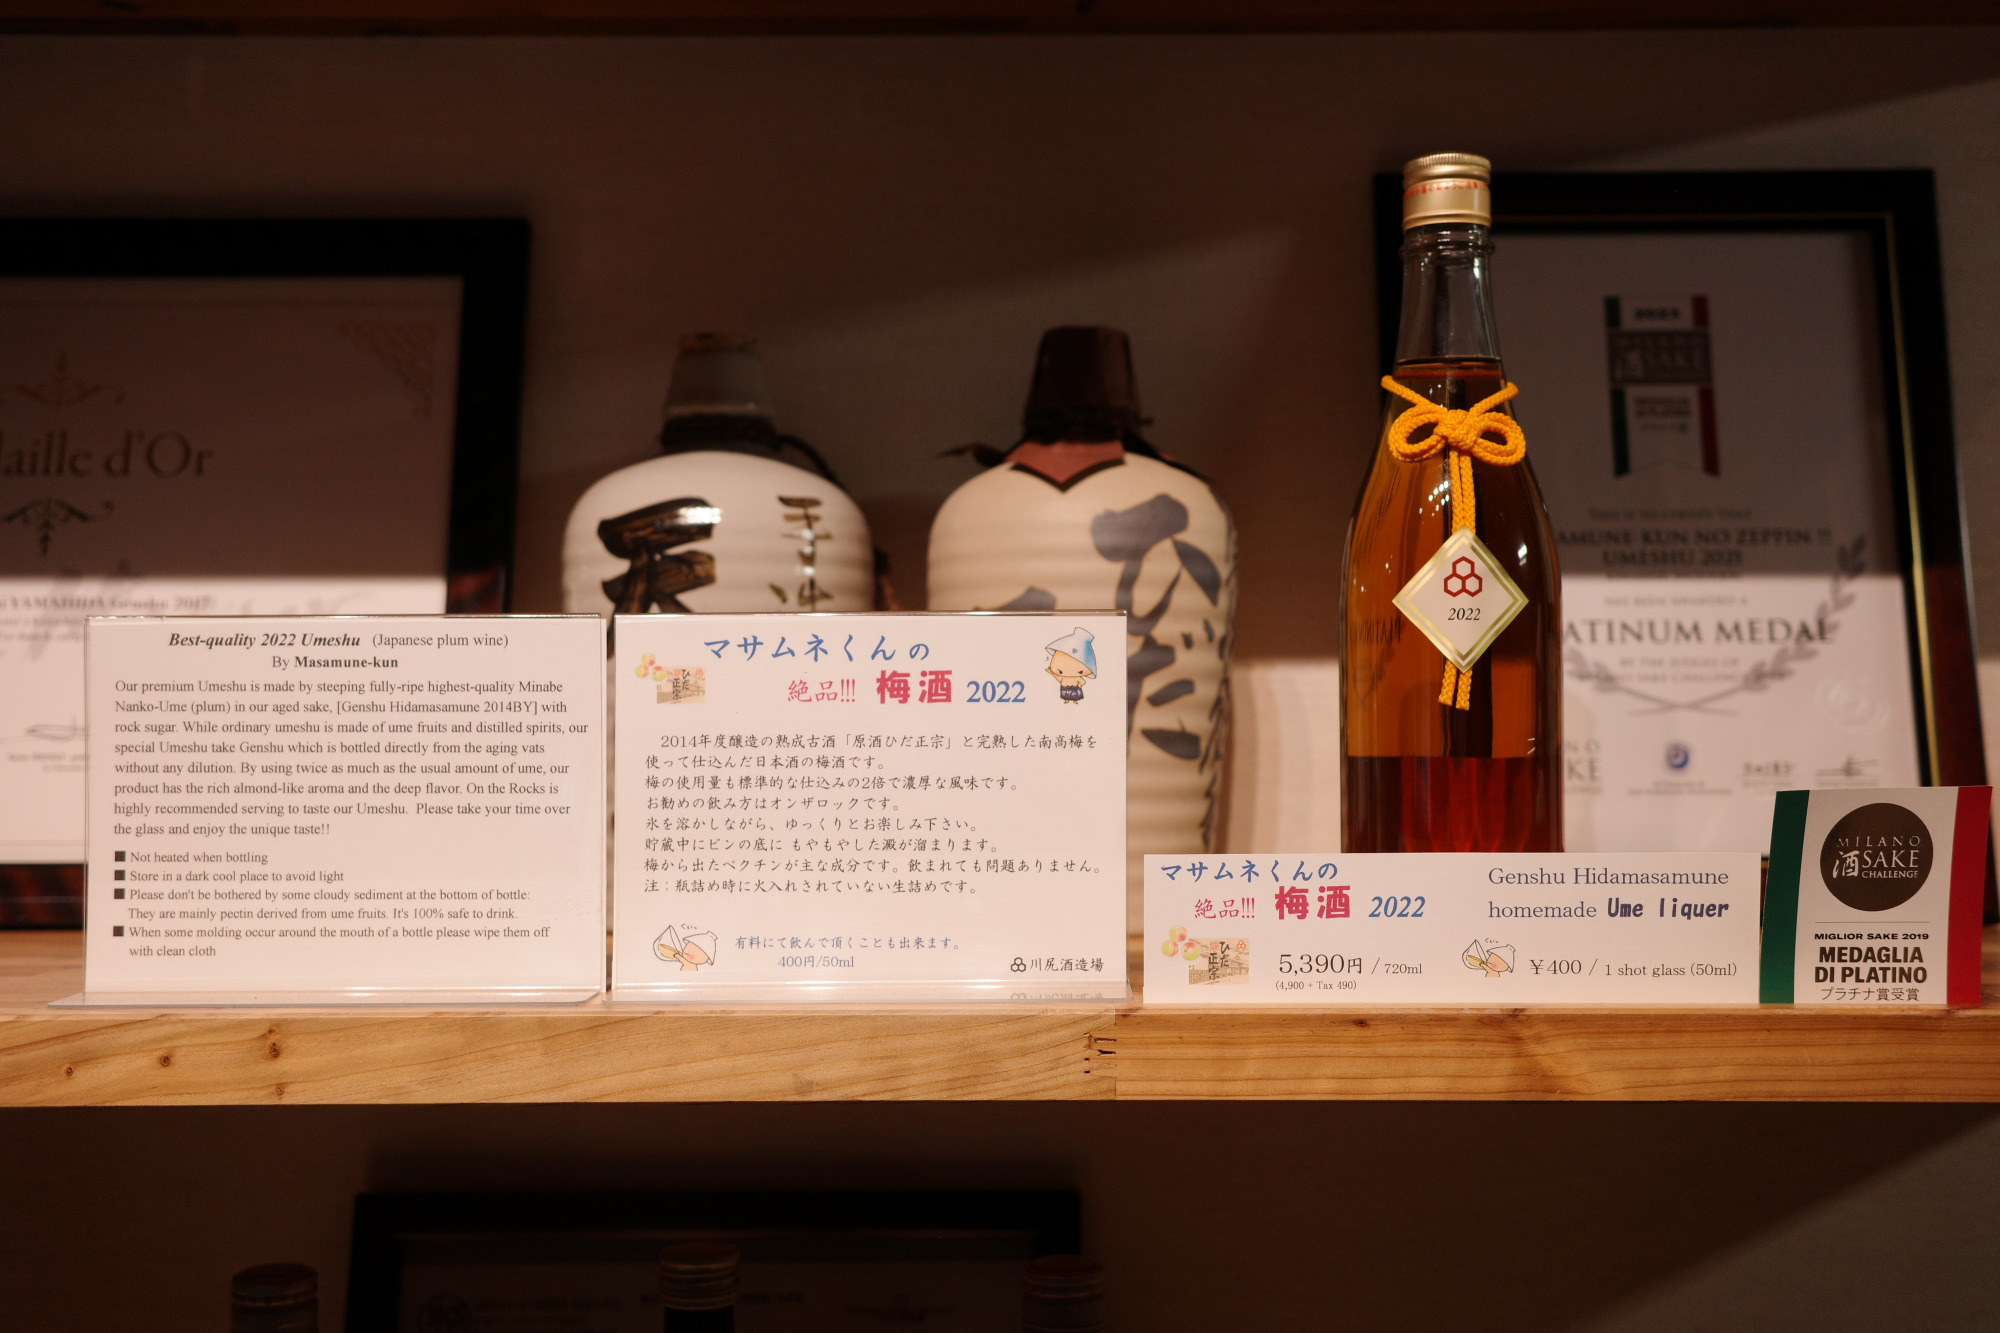 aille d'Or
YAMAHIDA Genshu 2017
天
ひだ
Best-quality 2022 Umeshu (Japanese plum wine)
By Masamune-kun
Our premium Umeshu is made by steeping fully-ripe highest-quality Minabe
Nanko-Ume (plum) in our aged sake, [Genshu Hidamasamune 2014BY] with
rock sugar. While ordinary umeshu is made of ume fruits and distilled spirits, our
special Umeshu take Genshu which is bottled directly from the aging vats
without any dilution. By using twice as much as the usual amount of ume, our
product has the rich almond-like aroma and the deep flavor. On the Rocks is
highly recommended serving to taste our Umeshu. Please take your time over
the glass and enjoy the unique taste!!
■ Not heated when bottling
■ Store in a dark cool place to avoid light
■ Please don't be bothered by some cloudy sediment at the bottom of bottle:
They are mainly pectin derived from ume fruits. It's 100% safe to drink.
■ When some molding occur around the mouth of a bottle please wipe them off
with clean cloth
マサムネくんの
絶品!!! 梅酒 2022
ひだ
正宗
マサムネ
2014年度醸造の熟成古酒「原酒ひだ正宗」と完熟した南高梅を
使って仕込んだ日本酒の梅酒です。
梅の使用量も標準的な仕込みの2倍で濃厚な風味です。
お勧めの飲み方はオンザロックです。
氷を溶かしながら、ゆっくりとお楽しみ下さい。
貯蔵中にビンの底に もやもやした澱が溜まります。
梅から出たペクチンが主な成分です。飲まれても問題ありません。
注：瓶詰め時に火入れされていない生詰めです。
有料にて飲んで頂くことも出来ます。
400円/50ml
川尻酒造場
2022
2022
MILANO
酒SAKE
MEDAGLIA
DI PLATINO
AMUNE-KUN NO ZEPPIN !!
UMESHU 2021
HAS BEEN AWARDED A
ATINUM MEDAL
BY THE JUDGES OF
マサムネくんの
絶品!!! 梅酒 2022
ひだ
正宗
5,390円 / 720ml
(4,900 + Tax 490)
Genshu Hidamasamune
homemade Ume liquer
¥400 / 1 shot glass (50ml)
MILANO
酒SAKE
CHALLENGE
MIGLIOR SAKE 2019
MEDAGLIA
DI PLATINO
プラチナ賞受賞